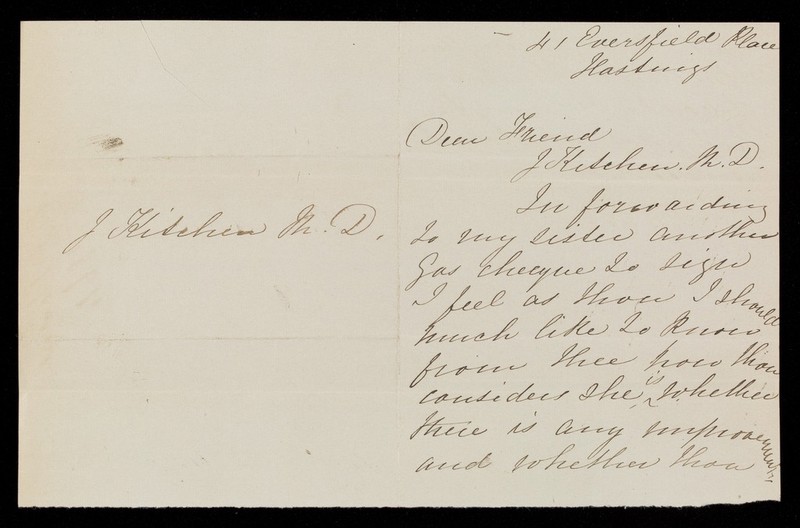 J Kitchen M. D.
41 Eversfield Place
Hastings
Dear Friend
J Kitchen. M. D.
In forwarding
to my sister another
Gas cheque to sign
I feel as thou I should
much like to know
from thee how thou
considers she is, whether
there is any improvement
and whether thou